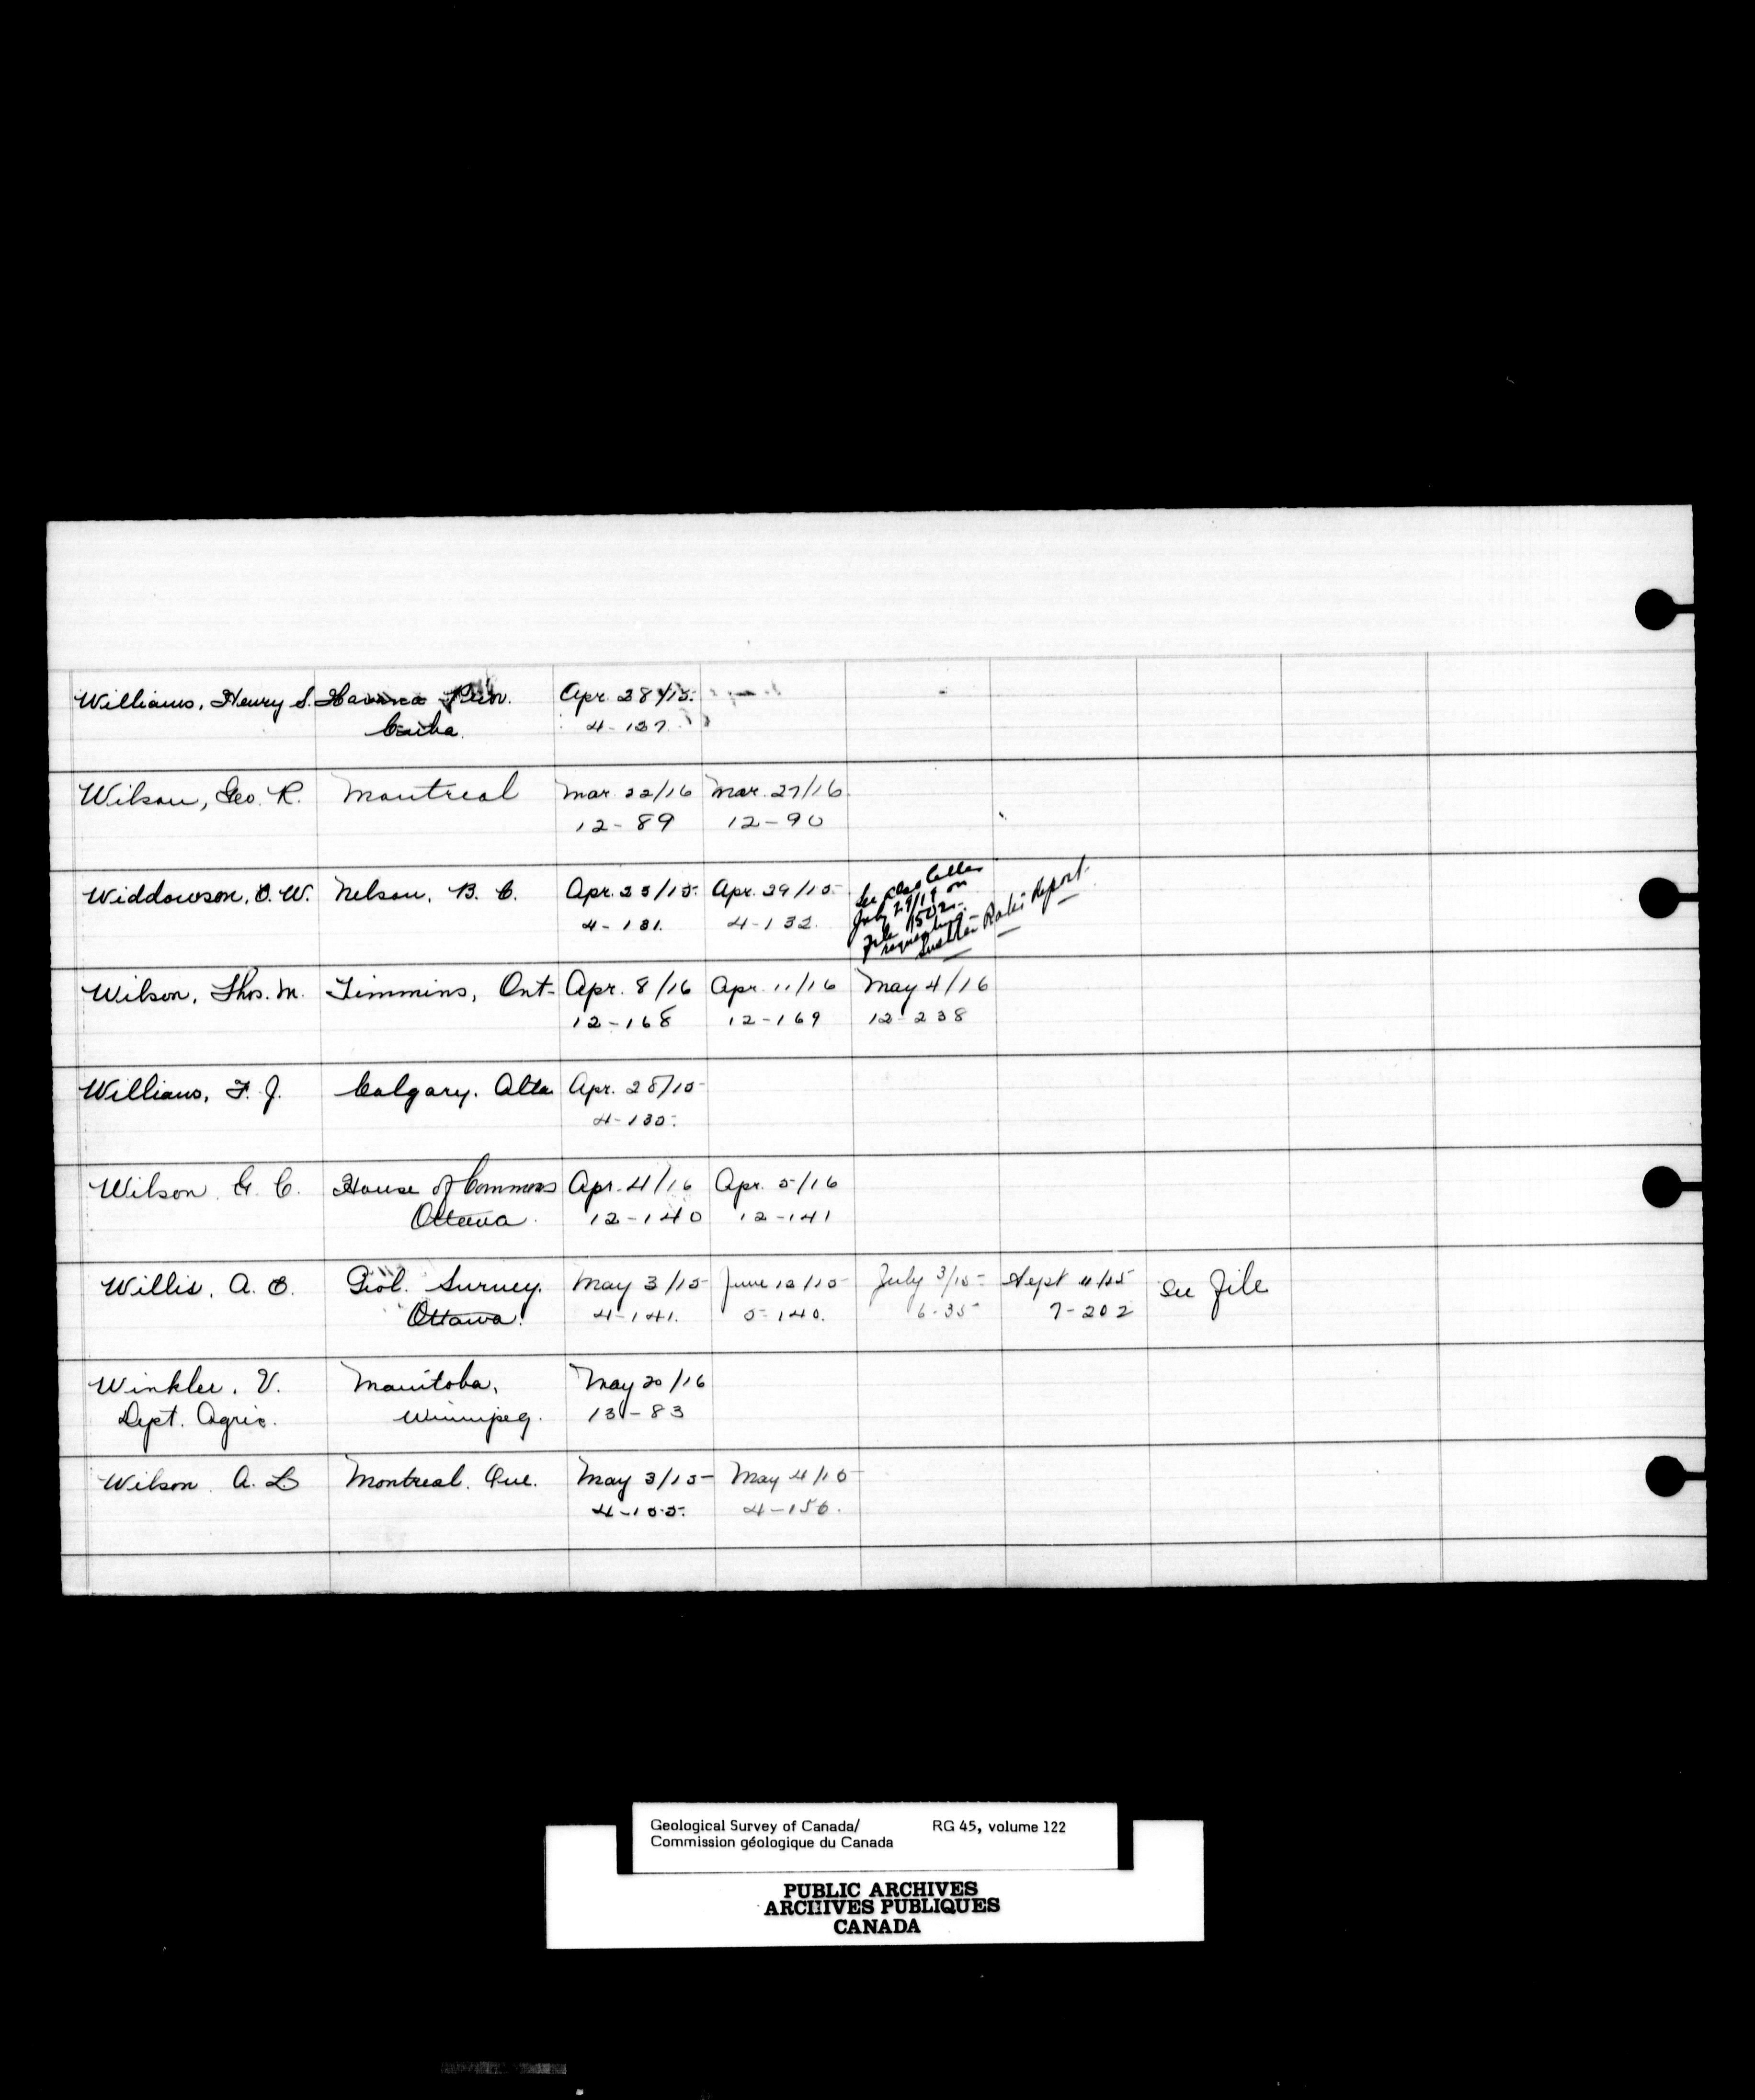 Williams, Henry S. Havana Prov. Apr. 28/15.
Cuba. 4-127.
Wilson, Geo. R. Montreal Mar. 22/16 Mar. 27/16
12-89 12-90
Widdowson, O. W. Nelson, B. C. Apr. 23/15. Apr. 29/15. See also letter
4-131. 4-132. July 29/19 on
File 150
requesting
Report.
Wilson, Thos. M. Timmins, Ont- Apr. 8/16 Apr. 11/16 May 4/16
12-168 12-169 12-238
Williams, F. J. Calgary. Alta Apr. 28/15
4-135.
Wilson G. C. House of Commons Apr. 4/16 Apr. 5/16
Ottawa. 12-140 12-141
Willis, A. C. Geol. Survey. May 3/15 June 12/15 July 3/15 Sept 11/15 See file
Ottawa. 4-141. 5-140. 6-35 7-202
Winkler, V. Manitoba, May 20/16
Dept. Agric. Winnipeg. 13-83
Wilson A. L. Montreal. Que. May 3/15 May 4/15
4-155. 4-156.
Geological Survey of Canada/ RG 45, volume 122
Commission géologique du Canada
PUBLIC ARCHIVES
ARCHIVES PUBLIQUES
CANADA